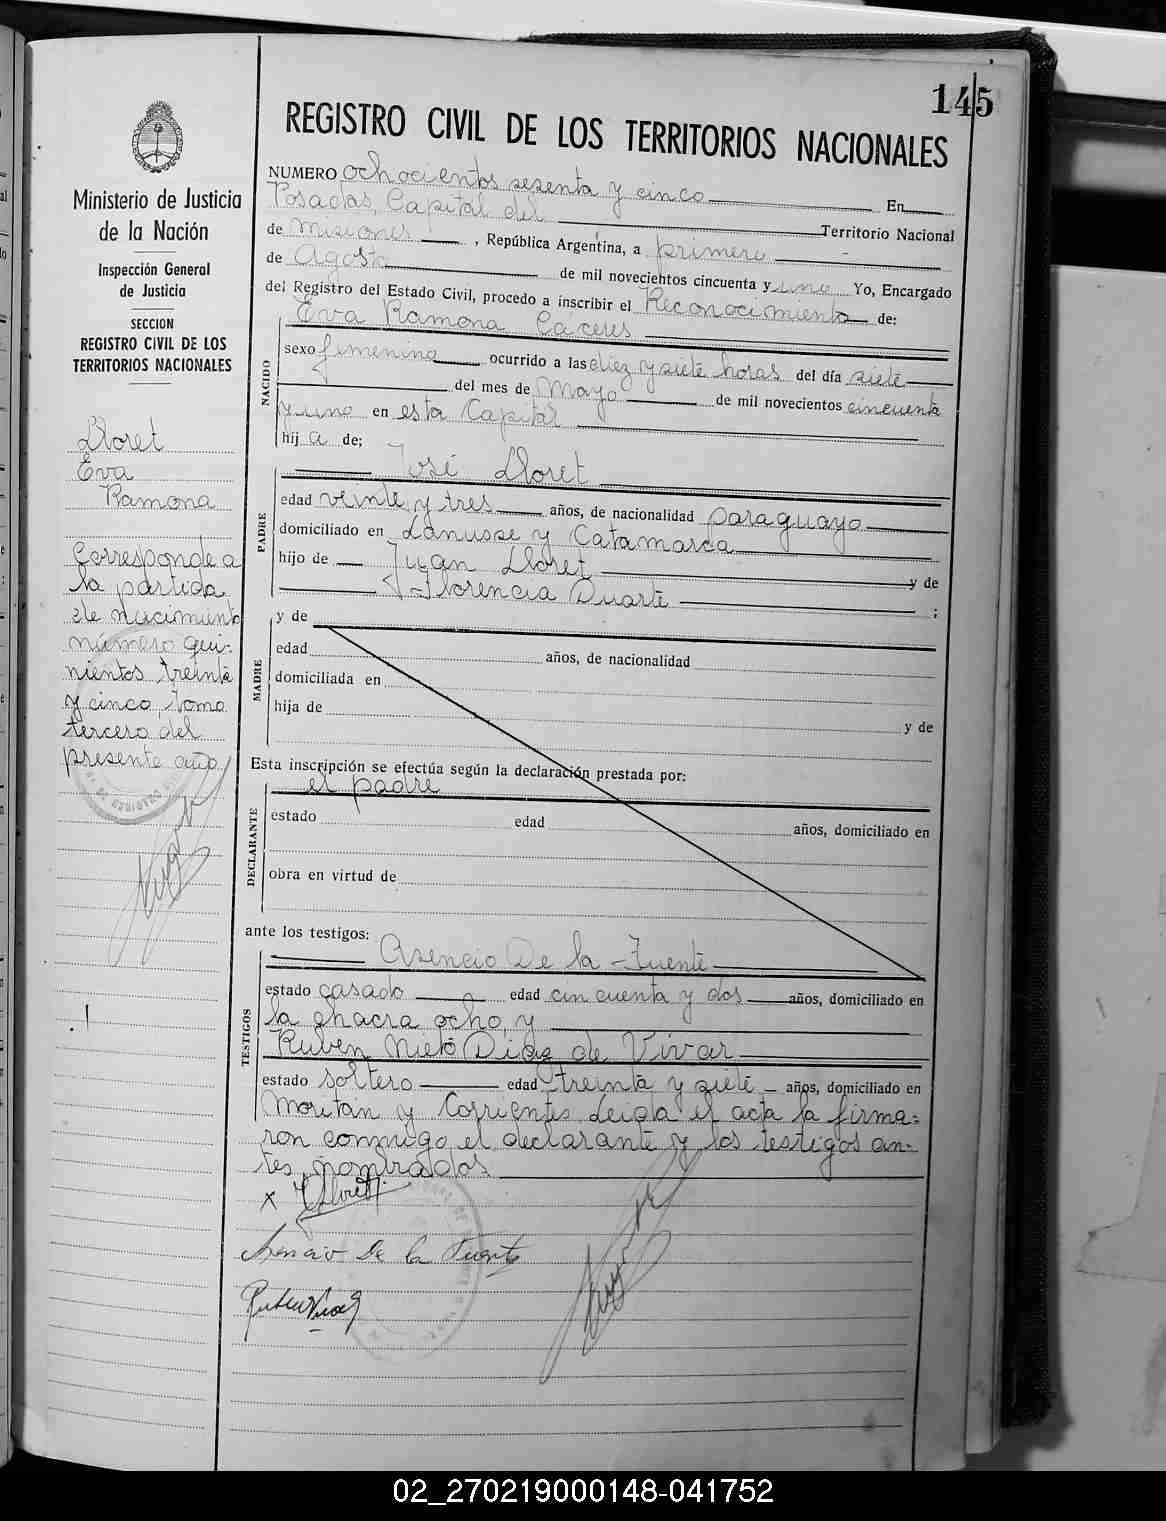 145
REGISTRO CIVIL DE LOS TERRITORIOS NACIONALES
Ministerio de Justicia
de la Nación
Inspección General
de Justicia
SECCION
REGISTRO CIVIL DE LOS
TERRITORIOS NACIONALES
Lloret
Eva
Ramona
Corresponde a
la partida
de nacimiento
número qui-
nientos treinta
y cinco, tomo
tercero del
presente año
NUMERO ochocientos sesenta y cinco En
Posadas, Capital del Territorio Nacional
de Misiones, República Argentina, a primero
de Agosto de mil novecientos cincuenta y uno Yo, Encargado
del Registro del Estado Civil, procedo a inscribir el Reconocimiento de:
Eva Ramona Cáceres
NACIDO
sexo femenino ocurrido a las diez y siete horas del día siete
del mes de Mayo de mil novecientos cincuenta
y uno en esta Capital
hij a de;
José Lloret
PADRE
edad veinte y tres años, de nacionalidad paraguayo
domiciliado en Lanusse y Catamarca
hijo de Juan Lloret y de
Florencia Duarte ;
y de
MADRE
edad años, de nacionalidad
domiciliada en
hija de y de
Esta inscripción se efectúa según la declaración prestada por:
el padre
DECLARANTE
estado edad años, domiciliado en
obra en virtud de
ante los testigos:
Asencio De la Fuente
TESTIGOS
estado casado edad cincuenta y dos años, domiciliado en
la chacra ocho, y
Ruben Nieto Diaz de Vivar
estado soltero edad treinta y siete años, domiciliado en
Moritan y Corrientes Leida el acta la firma=
ron conmigo el declarante y los testigos an-
tes nombrados
x J Lloret
Asencio De la Fuente
02_270219000148-041752